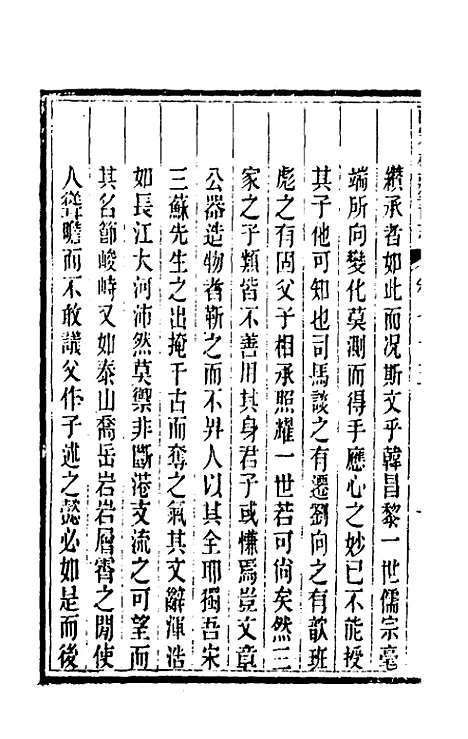 纉承者如此而况斯文乎韓昌黎一世儒宗毫
端所向變化莫測而得手應心之妙已不能授
其子他可知也司馬談之有遷劉向之有歆班
彪之有固父子相承照耀一世若可尚矣然三
家之子類皆不善用其身君子或慊焉豈文章
公器造物者靳之而不畀人以其全耶獨吾宋
三蘇先生之出掩千古而奪之氣其文辭渾浩
如長江大河沛然莫禦非斷港支流之可望而
其名節峻峙又如泰山喬岳岩岩層霄之閒使
人聳瞻而不敢議父作子述之懿必如是而後